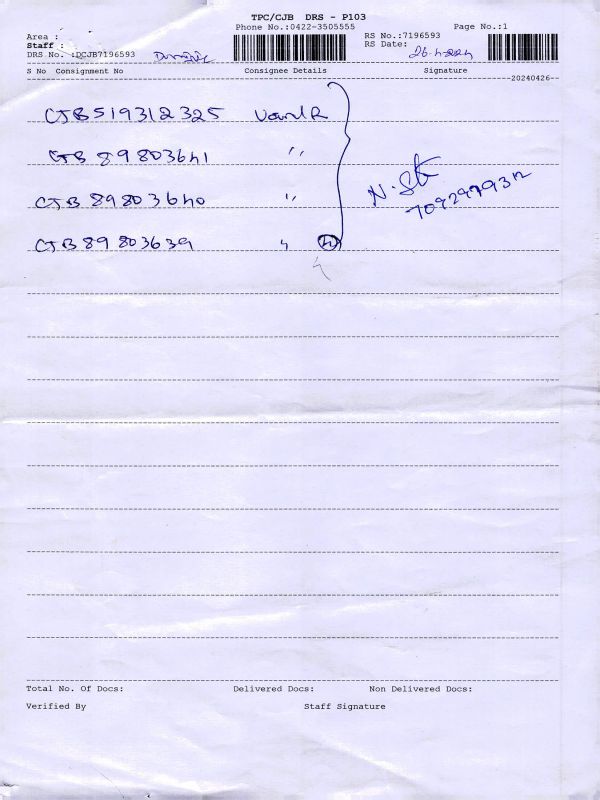 TPC/CJB DRS - P103
Phone No.:0422-3505555
Page No.:1
Area :
RS No.:7196593
Staff :
RS Date: 26-4-2024
DRS No. :DCJB7196593
S No Consignment No Consignee Details Signature
20240426
CJB519312325
CJB 89803641 〃
CJB 89803640 〃
CJB 89803639 〃 4
7092979312
Total No. Of Docs: Delivered Docs: Non Delivered Docs:
Verified By Staff Signature